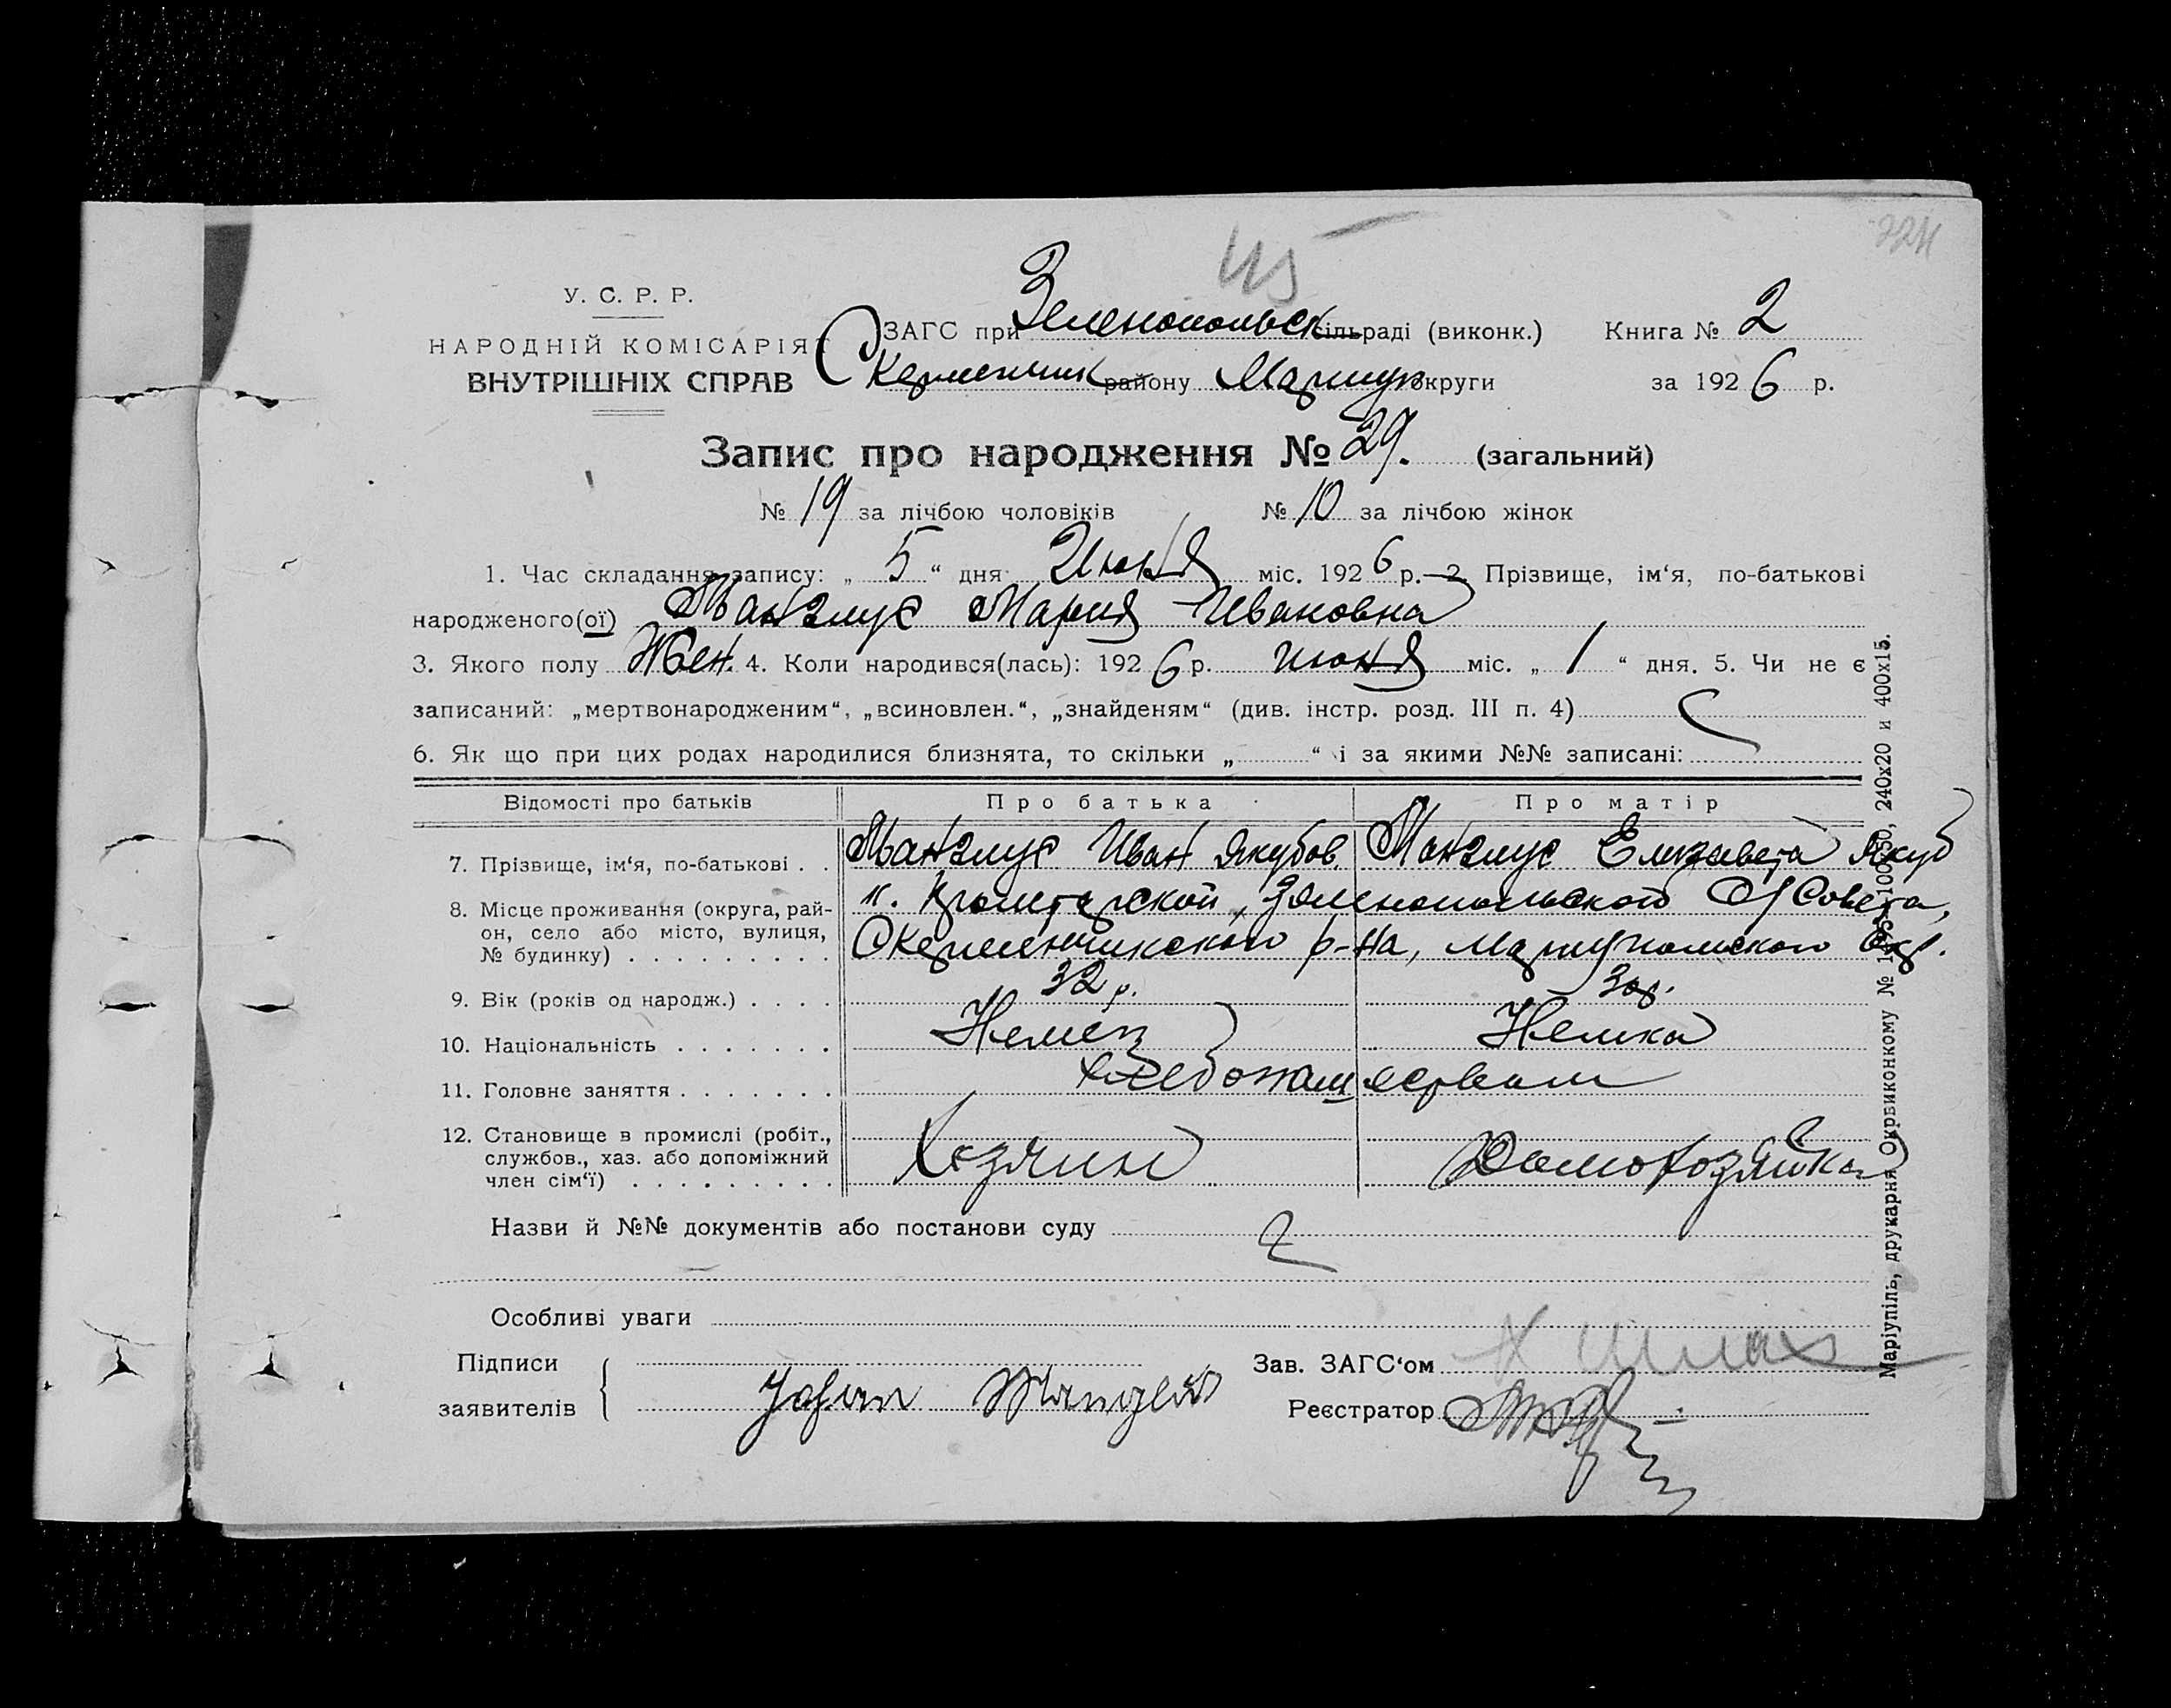 У. С. Р. Р.
НАРОДНІЙ КОМІСАРІЯТ
ВНУТРІШНІХ СПРАВ
ЗАГС при Зеленопольск сільраді (виконк.) Книга № 2
Скерменчик району Мариуп округи за 1926 р.
Запис про народження № 29. (загальний)
№ 19 за лічбою чоловіків № 10 за лічбою жінок
1. Час складання запису: „ 5 “ дня Июня міс. 1926 р.—2. Прізвище, ім‘я, по-батькові
народженого(ої) Манглус Мария Ивановна
3. Якого полу Жен. 4. Коли народився(лась): 1926 р. июня міс. „ 1 “ дня. 5. Чи не є
записаний: „мертвонародженим“, „всиновлен.“, „знайденям“ (див. інстр. розд. III п. 4)
6. Як що при цих родах народилися близнята, то скільки „ “ і за якими №№ записані:
Відомості про батьків Про батька Про матір
7. Прізвище, ім‘я, по-батькові . . Манглус Иван Якубов. Манглус Елизавета Якуб
8. Місце проживання (округа, рай-
он, село або місто, вулиця,
№ будинку) . . . . . . . . .
к. , Зеленопольского С/Совета,
Скерменчикского р-на, Мариупольского Окр.
9. Вік (років од народж.) . . . . 32 р.
10. Національність . . . . . . . Немец Немка
11. Головне заняття . . . . . . . хлебопашеством
12. Становище в промислі (робіт.,
службов., хаз. або допоміжний
член сім‘ї) . . . . . . . . .
Хозяин Домохозяйка
Назви й №№ документів або постанови суду
Особливі уваги
Підписи
заявителів
Johan Manglus
Зав. ЗАГС‘ом
Реєстратор
Маріупіль, друкарня Окрвиконкому № 240х20 и 400х15.